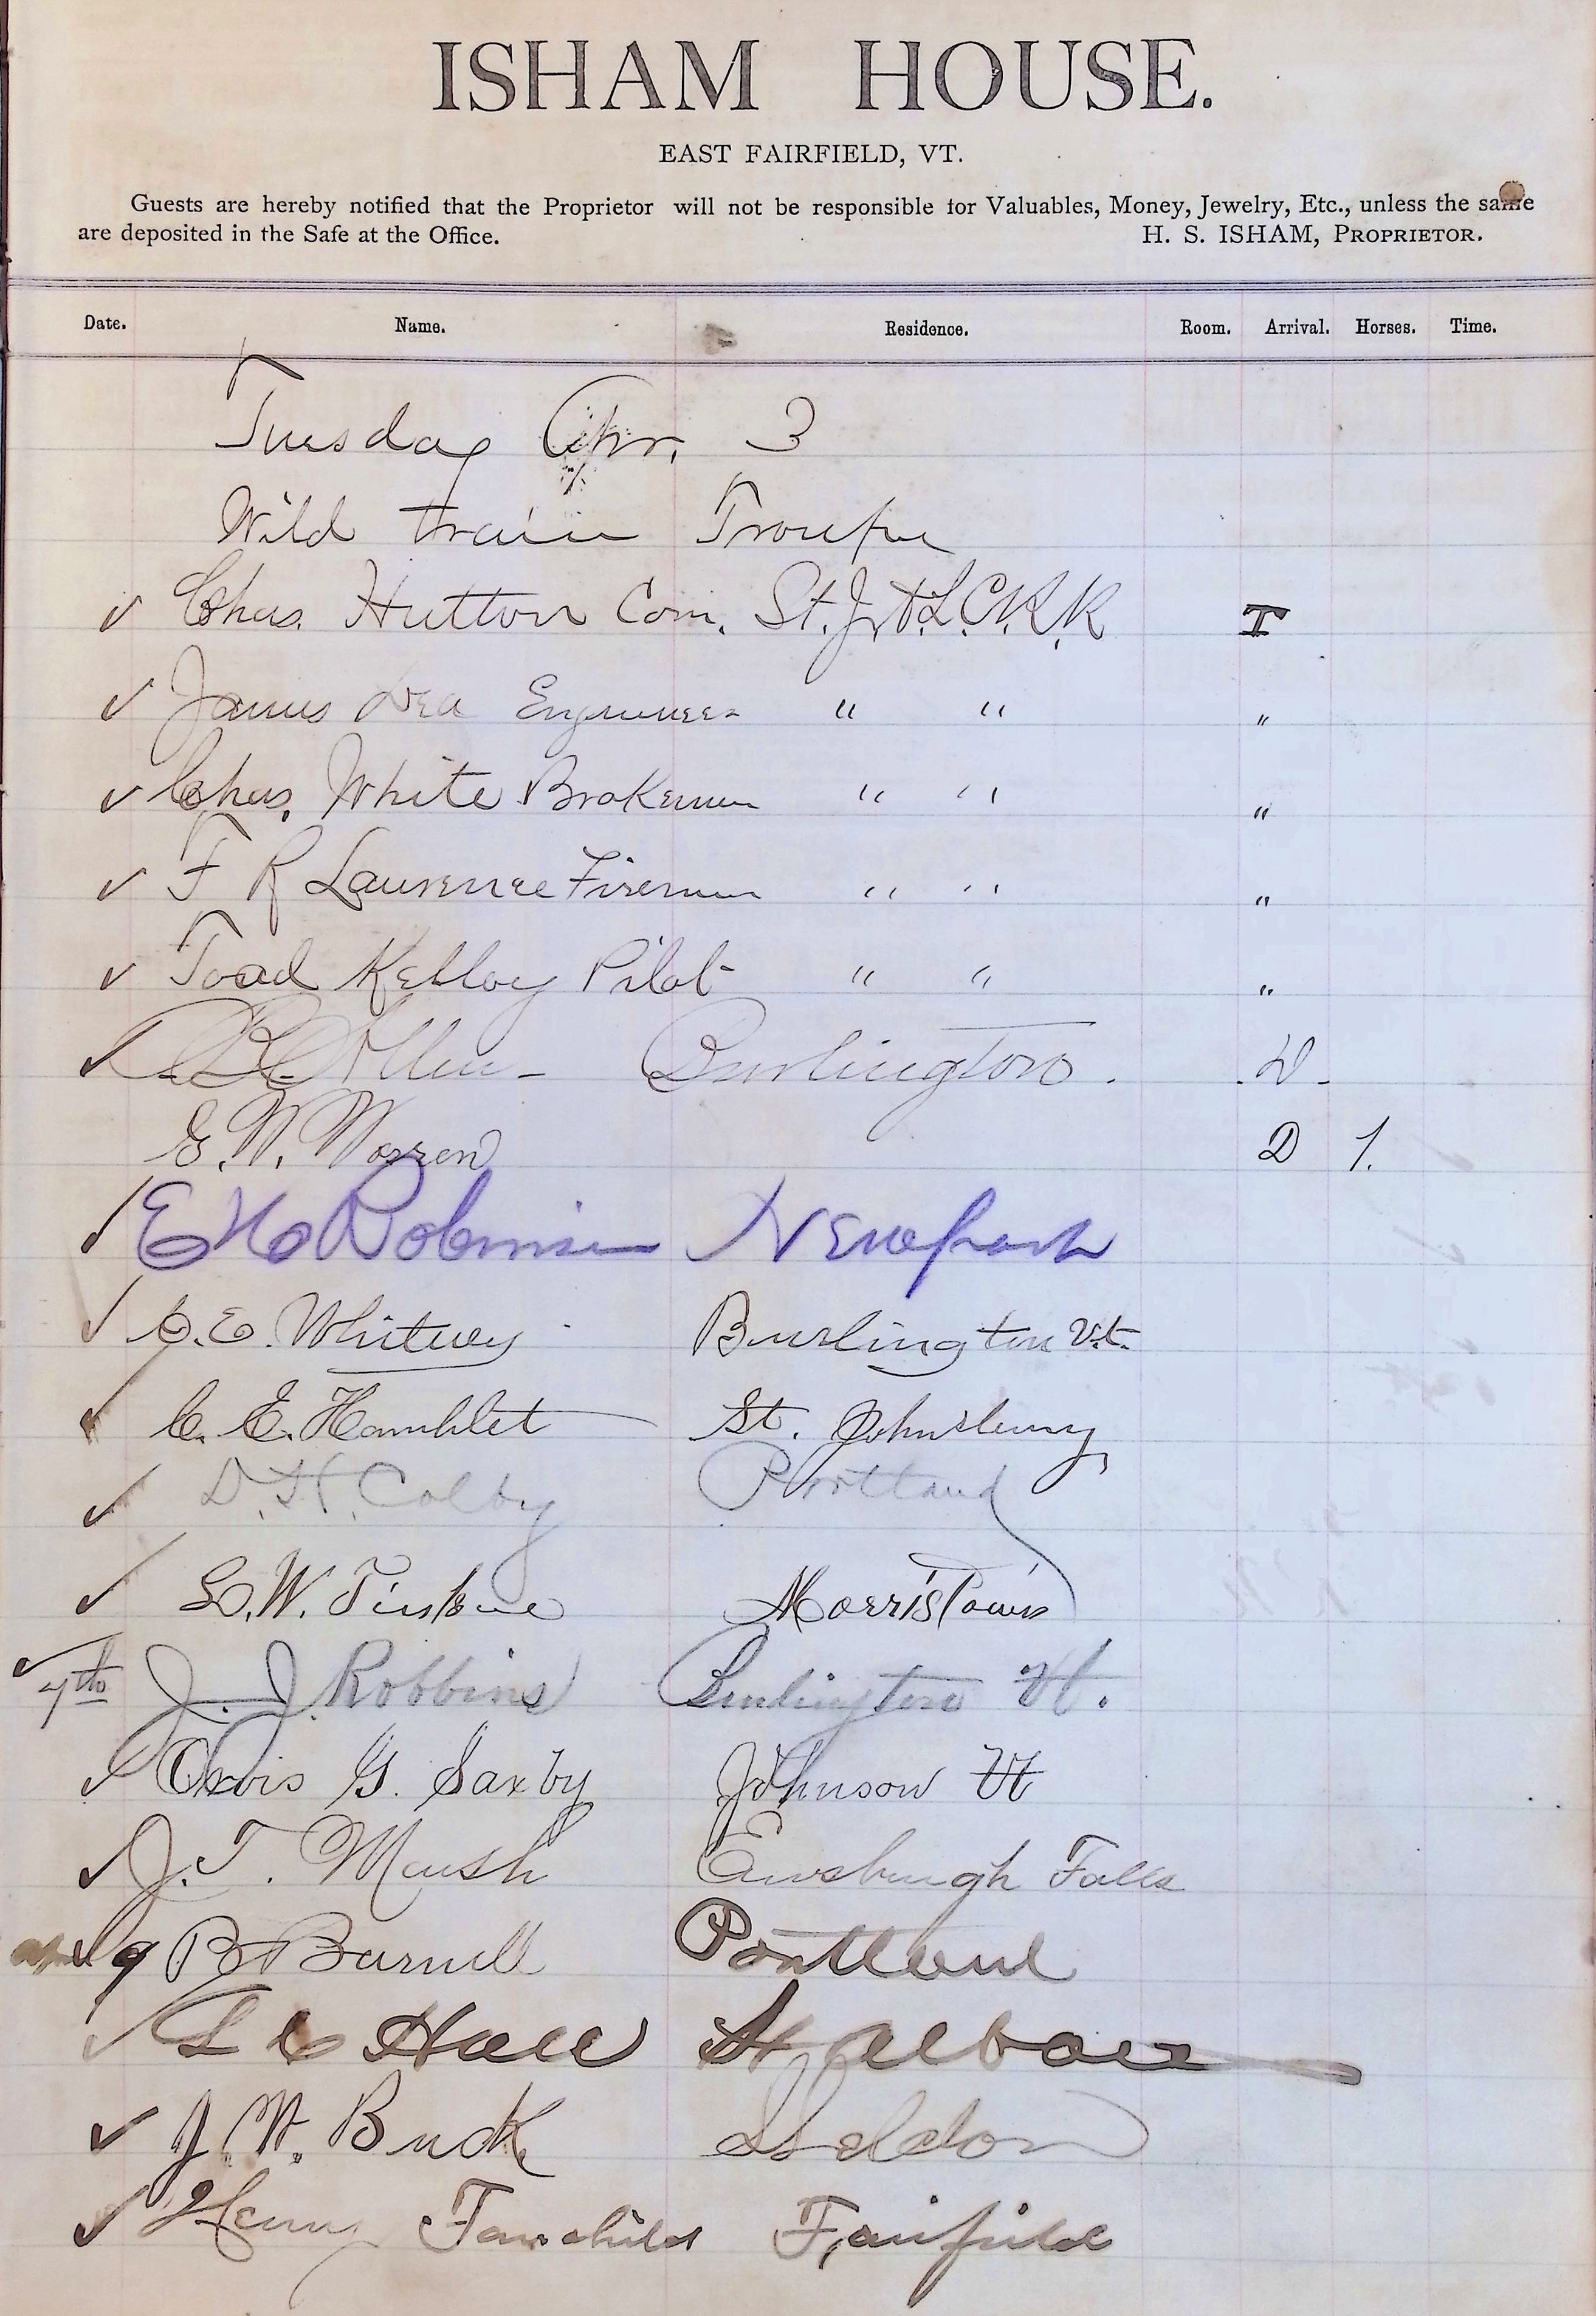 ISHAM HOUSE.
EAST FAIRFIELD, VT.
Guests are hereby notified that the Proprietor will not be responsible for Valuables, Money, Jewelry, Etc., unless the same
are deposited in the Safe at the Office. H. S. ISHAM, PROPRIETOR.
Date. Name. Residence. Room. Arrival. Horses. Time.
Tuesday Apr. 3
Wild train Troupe
✓ Chas. Hutton Con. St. J. & L. C. R. R. T
✓ James Engineer " " "
✓ Chas. White Brakeman " " "
✓ F R Lawrence Fireman " " "
✓ Toad Kelley Pilot " " "
✓ Allen - Burlington. D.
G. W. Warren D 1.
✓ E H Robinson Newport
✓ C. E. Whitney Burlington Vt.
✓ C. E. Hamblet St. Johnsbury
✓ D. H. Colby Portland
✓ W. Morristown
✓ J. J. Robbins Burlington Vt.
✓ Orvis G. Saxby Johnson Vt
✓ J. T. Marsh Enosburgh Falls
✓ 9 B Burnell Portland
✓ L C Hall St Albans
✓ J. W. Buck Sheldon
✓ Henry Fairchild Fairfield